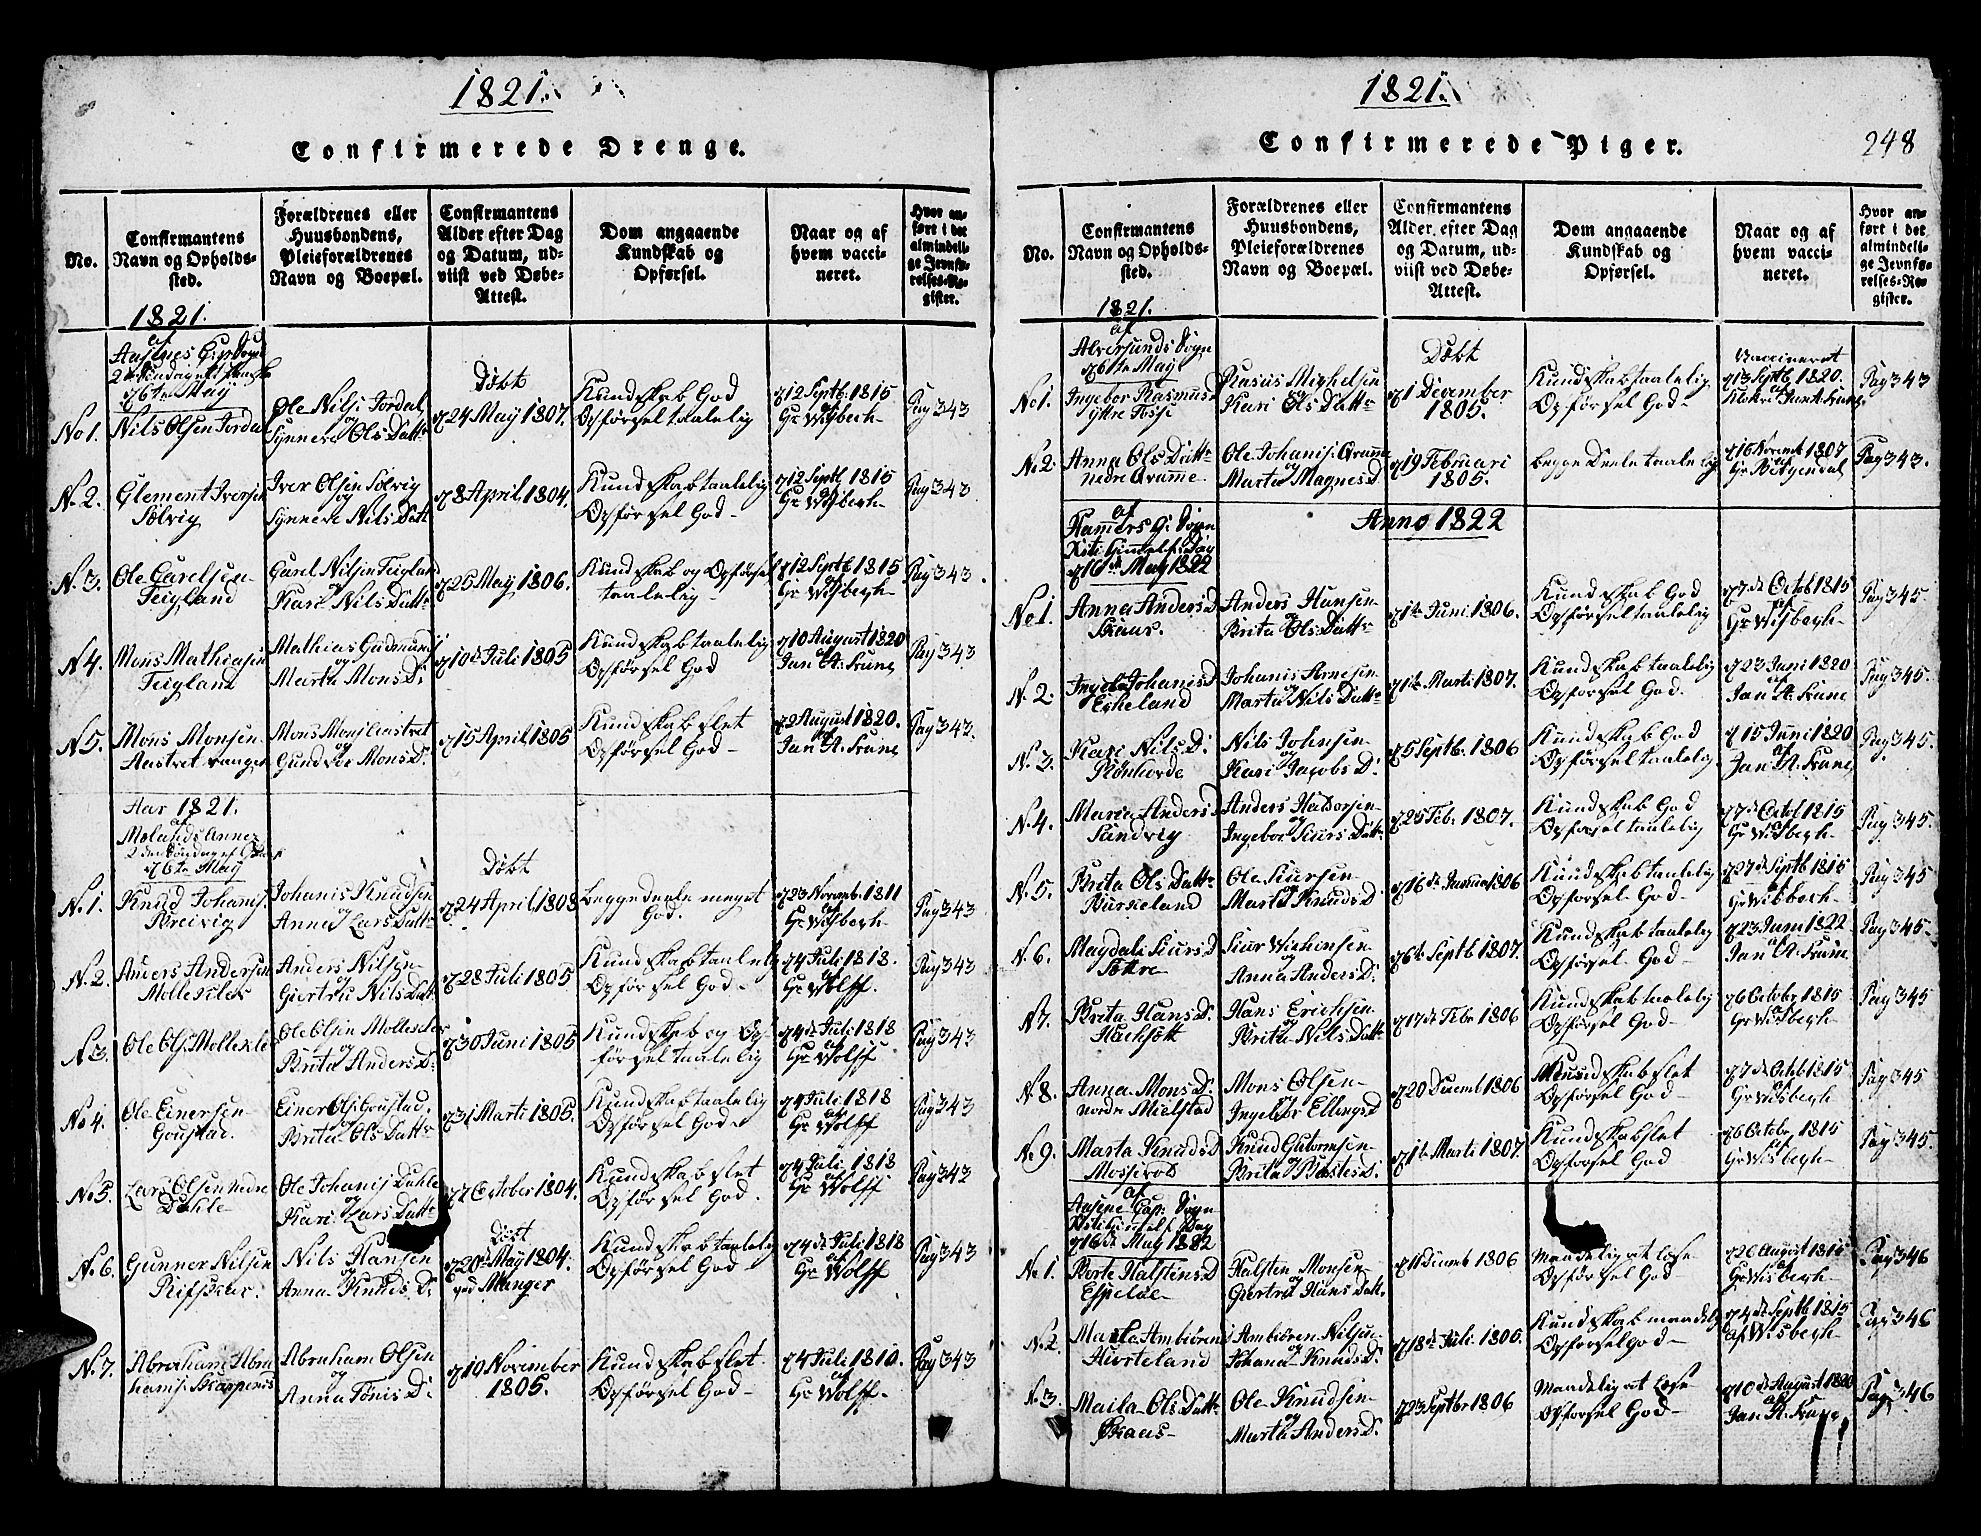 1821.
Confirmerede Drenge.
No.
Confirmantens
Navn og Opholds-
sted.
Forældrenes eller
Huusbondens,
Pleieforældrenes
Navn og Boepæl.
Confirmantens
Alder efter Dag
og Datum, ud-
viist ved Døbe-
Attest.
Dom angaaende
Kundskab og
Opførsel.
Naar og af
hvem vacci-
neret.
Hvor an-
ført i det
almindeli-
ge Jevnfø-
relses-Re-
gister.
1821.
af
6te May
No 1.
Nils Olsen Tordal
Ole Nilss Tordal
og
Synneve Ols Dattr
Døbt
24 May 1807.
Kundskab God
Opførsel taalelig
12 Septb 1815
af
Hr Wisbech
Pag 343
No 2.
Clement Iversen
Solvig
Iver Olsen Solvig
og
Synneve Nils Datt
8 April 1804.
Kundskab taalelig
Opførsel God
12 Septb 1815
af
Hr Wisbergh
Pag 343
No 3.
Ole Carelsen
Teigland
Carel Nilsen Teigland
og
Kari Nils Dattr
25 May 1806.
Kundskab og Opførsel
taalelig
12 Septb 1815
af
Hr Wisbergh
Pag 343
No 4.
Mons Mathiasen
Teigland
Mathias Gudmunds
og
Marta Mons D:
10de Juli 1805
Kundskab taalelig
Opførsel God
10 August 1820
af
Jan A. Krune
Pag 343
No 5.
Mons Monsen
Mons Monss
og
Mons D:
15 April 1805
Kundskab slet
Opførsel God
2 August 1820.
af
Jan A. Krune
Pag 343.
Aar 1821.
af
6te May
No 1.
Knud Johaniss
Breivig
Johanis Knudsen
og
Anna Lars Dattr
Døbt
24 April 1803
begge deele meget
God.
23 Novemb 1811
af
Hr Wisbergh
Pag 343
No 2.
Anders Andersen
Mollesclet
Anders Nilsen
og
Giertru Nils Datt
28 Juli 1805
Kundskab taalelig
Opførsel God
4 Juli 1818.
af
Hr Wolff.
Pag 343
No 3.
Ole Ols
Ole Olsen
og
Brita Anders D:
30 Juni 1805
Kundskab og Op
førsel taalelig
4de Juli 1818
af
Hr Wolff
Pag 343
No 4.
Ole Einersen
Goustad.
Einer Ols Goustad.
og
Brita Ols Dattr
31 Marti 1805.
Kundskab taalelig
Opførsel God
4 Juli 1818
af
Hr Wolff
Pag 343
No 5.
Lars Olsen nedre
Dahle
Ole Johaniss Dahle
og
Kari Lars Dattr
7 October 1804.
Kundskab slet
Opførsel God.
4 Juli 1818
af
Hr Wolff
Pag 343
No 6.
Gunner Nilsen
Nils Hansen
og
Anna Knuds D:
Døbt
20de May 1804.
ved Manger
Kundskab taalelig
Opførsel God
4de Juli 1818
af
Hr Wolff
Pag 343
No 7.
Abraham Abra
hams
Abraham Olsen
og
Anna Tønis D:
10 November
1805.
Kundskab slet
Opførsel God
4 Juli 1810.
af
Hr Wolff
Pag 343
1821.
Confirmerede Piger.
248
No.
Confirmantens
Navn og Opholds-
sted.
Forældrenes eller
Huusbondens,
Pleieforældrenes
Navn og Boepæl.
Confirmantens
Alder efter Dag
og Datum, ud-
viist ved Døbe-
Attest.
Dom angaaende
Kundskab og
Opførsel.
Naar og af
hvem vacci-
neret.
Hvor an-
ført i det
almindeli-
ge Jevnfø-
relses-Re-
gister.
1821.
af
Alversunds Sogn
6te May
No 1.
Ingebor Rasmus
ytre Fosse
Rasmus Michelsen
og
Kari Ols Dattr
Døbt
1 December
1805.
Kundskab taalelig
Opførsel God
Vaccineret
13 Septb 1820.
af
Klokr Jan A. Krune.
Pag 343
No 2.
Anna Ols Dattr
nedre Qvamme
Ole Johaniss Qvamme
og
Marta Magnes D
19 Februari
1805.
begge Deele taalelig
16 Novemb 1807
af
Pag 343.
af
Hammers G: Sogn
16de May 1822
Anno 1822
No 1.
Anna Anders D
Anders Hansen
og
Brita Ols Dattr
1te Juni 1806.
Kundskab God
Opførsel taalelig
7de Octob 1815
af
Hr Wisbergh
Pag 345
No 2.
Ingeb Johanis D
Eskeland
Johanis Arnesen
og
Marta Nils Dattr
1te Marti 1807.
Kundskab taalelig
Opførsel God.
23 Juni 1820
af
Jan A. Krune
Pag 345.
No 3.
Kari Nils D:
Nils Johnsen
og
Kari Jacobs D:
5 Septb. 1806
Kundskab God
Opførsel taalelig
15 Juni 1820
af
Jan A. Krune
Pag 345.
No 4.
Maria Anders D
Sundvig
Anders Haldorsen
og
Ingebor Siurs Datt:
25 Feb. 1807.
Kundskab God
Opførsel taalelig
7de Octob 1815
af
Hr Wisbergh
Pag 345.
No 5.
Brita Ols Dattr
Burkeland
Ole Siursen
og
Marta Knuds D
16de Januar 1806
Kundskab taalelig
Opførsel God
27de Septb 1815
af
Hr Wisbech
Pag 345
No 6.
Magdali Siurs D
Siur
og
Anna Anders D:
6te Septb 1807.
Kundskab taalelig
Opførsel God
23 Juni 1822
af
Jan A. Krune
Pag 345-
No 7.
Brita Hans D:
Hans Erichsen
og
Brita Nils Dattr
17de Febr 1806
Kundskab taalelig
Opførsel God
6 October 1815
af
Hr Wisbergh
Pag 345
No 8.
Anna Mons D:
nordre Mielstad
Mons Olsen
og
Ingebor Ellings D
20 Decemb 1806
Kundskab slet
Opførsel God
7de Octob 1815
af
Hr Wisbergh
Pag 345
No 9.
Marta Knuds D
Mosevold
Knud Gutormsen
og
Brita D:
1te Marti 1807.
Kundskab slet
Opførsel God
6 October 1815
af
Hr Wisbergh
Pag 345.
af
Sogn
16de May 1822
No 1.
Borte Halstens D
Espeloe
Halsten Monsen
og
Giertru Hans Datt.
11 Decemb 1806
Maadelig at læse
Opførsel God
26 August 1815
af
Hr Wisbergh
Pag 346
No 2.
Marta Ambiørens
Hiorteland
Ambiøren Nilsen
og
Johana Knuds D:
18de Juli 1806.
Kundskab maadelig
Opførsel God
4de Septb 1815
af Wisbergh
Pag 346
No 3.
Maila Ols Dattr
Ole Knudsen
og
Marta Anders D:
23 Septbr 1806
Maadelig at læse
Opførsel God
10de August 1820
af
Jan A. Krune
Pag 346